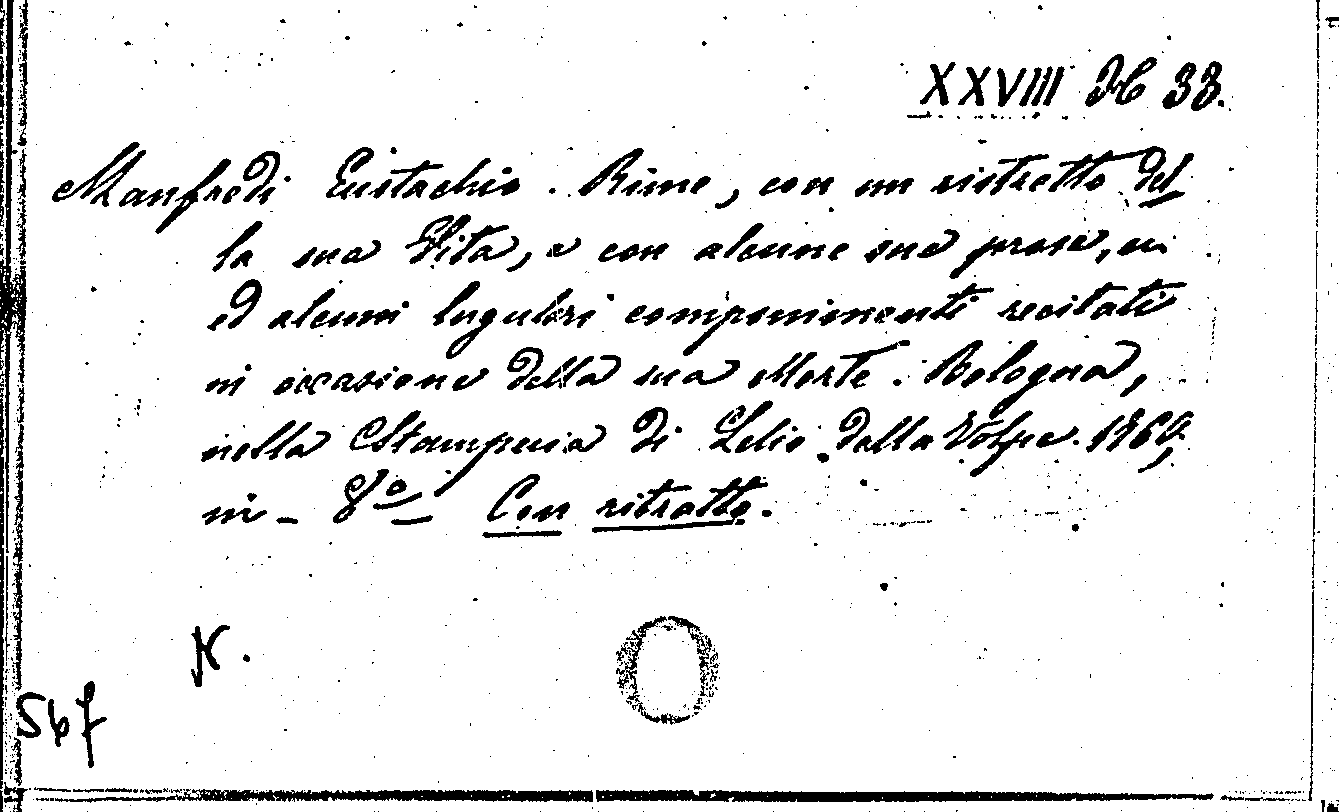 XXVIII H 33.
Manfredi Eustachio. Rime, con un ristretto del
la sua Vita, e con alcune sue prose,
ed alcuni lugubri componimenti recitati
in occasione della sua Morte. Bologna,
nella Stamperia di Lelio dalla Volpe. 1760,
in-8º Con ritratto.
N.
Sbf